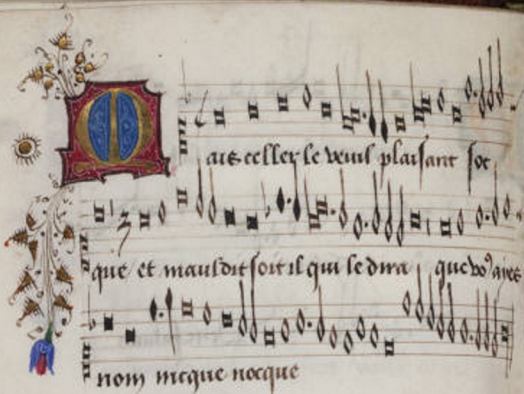 Mais celler le veuil plaisant soc
que / et mauldit soit il qui le dira que vo⁹ ayes
nom nicque nocque